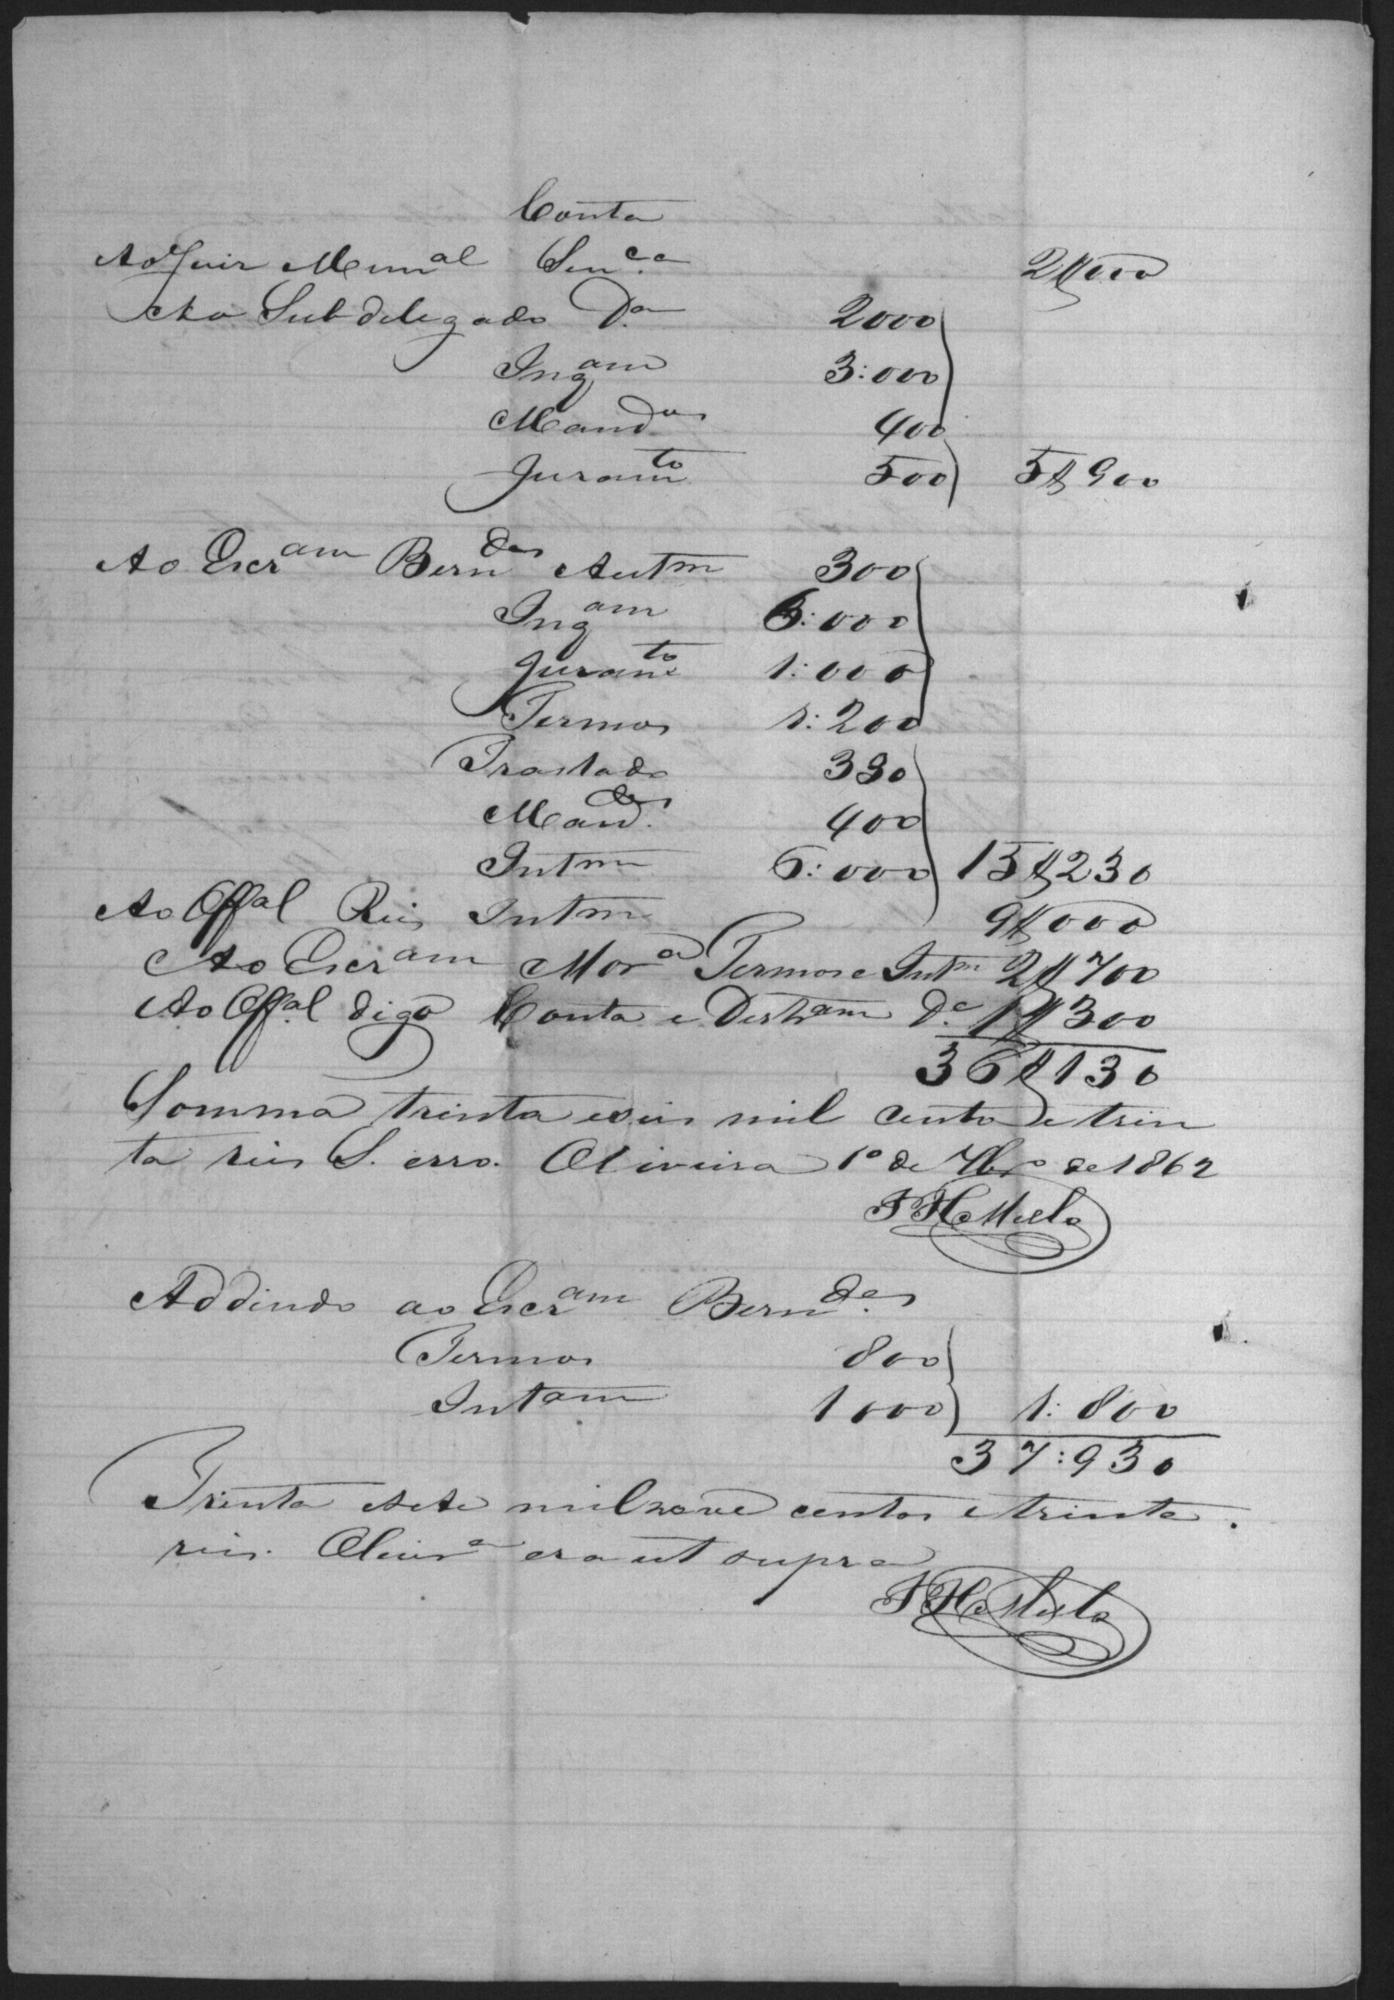 Conta
Ao Juiz Munal Sença 2$000
Ao Subdelegado Da 2000
Inqam 3:000
Mandos 400
Juramto 500 5$900
Ao Escram Berndes Autm 300
Inqam 6:000
Juramto 1:000
Termos 1:200
Traslado 330
Mandos 400
Intm 6:000 15$230
Ao Offal Reis Intm 9$000
Ao Escram Mora Termos e Intm 2$700
Ao Offal digo Conta e Destram Da 1$300
36$130
Somma trinta e seis mil cento e trin
ta reis S. erro. Oliveira 1º de 7bro de 1862
Addindo ao Escram Berndes
Termos 800
Intam 1000 1:800
37:930
Trinta e sete mil nove centos e trinta
reis. Oliva era ut supra